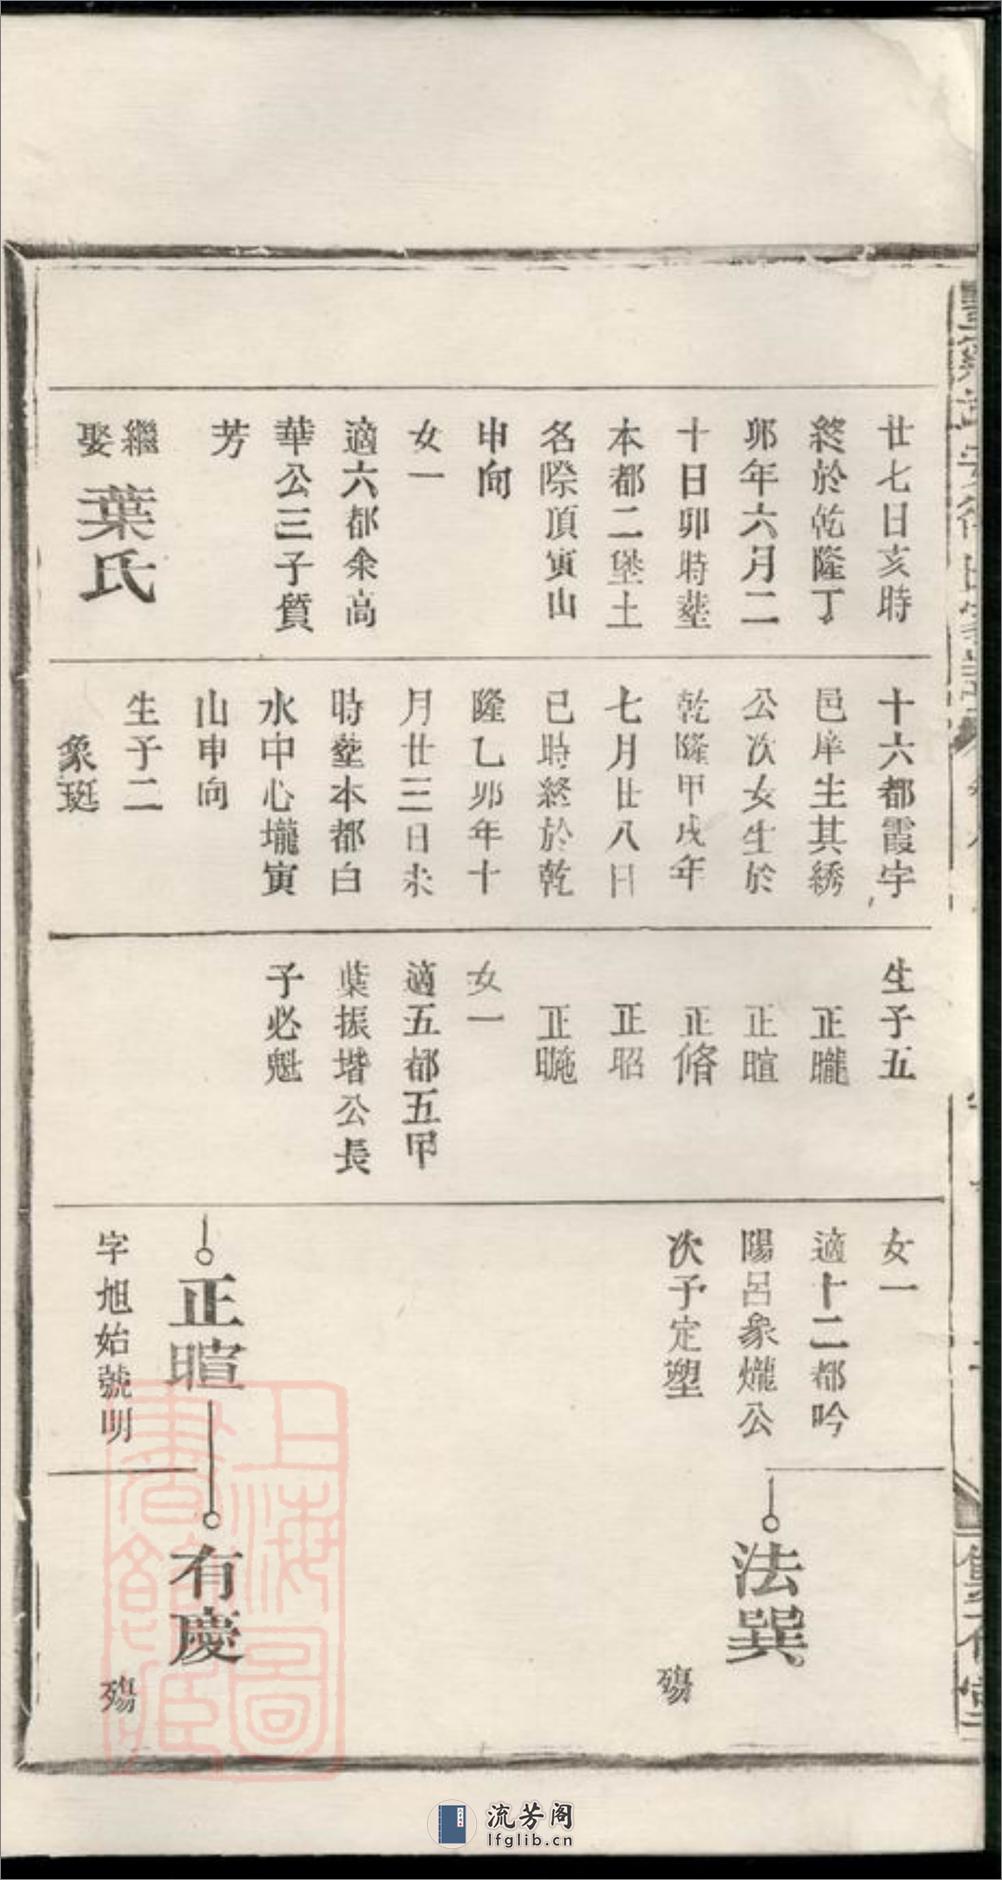 廿七日亥時
終於乾隆丁
卯年六月二
十日卯時塟
本都二堡土
名際頂寅山
申向
女一
適六都余高
華公三子質
芳
繼娶葉氏
十六都霞宇
邑庠生其綉
公次女生於
乾隆甲戌年
七月廿八日
巳時終於乾
隆乙卯年十
月廿三日未
時塟本都白
水中心壠寅
山申向
生子二
象珽
生子五
正矓
正暄
正脩
正昭
正暆
女一
適五都五甲
葉振堦公長
子必魁
女一
適十二都吟
陽呂象爖公
次子定塱
正暄
字旭始號明
法巽
殤
有慶
殤
上海圖書館藏
流芳阁
lfglib.cn